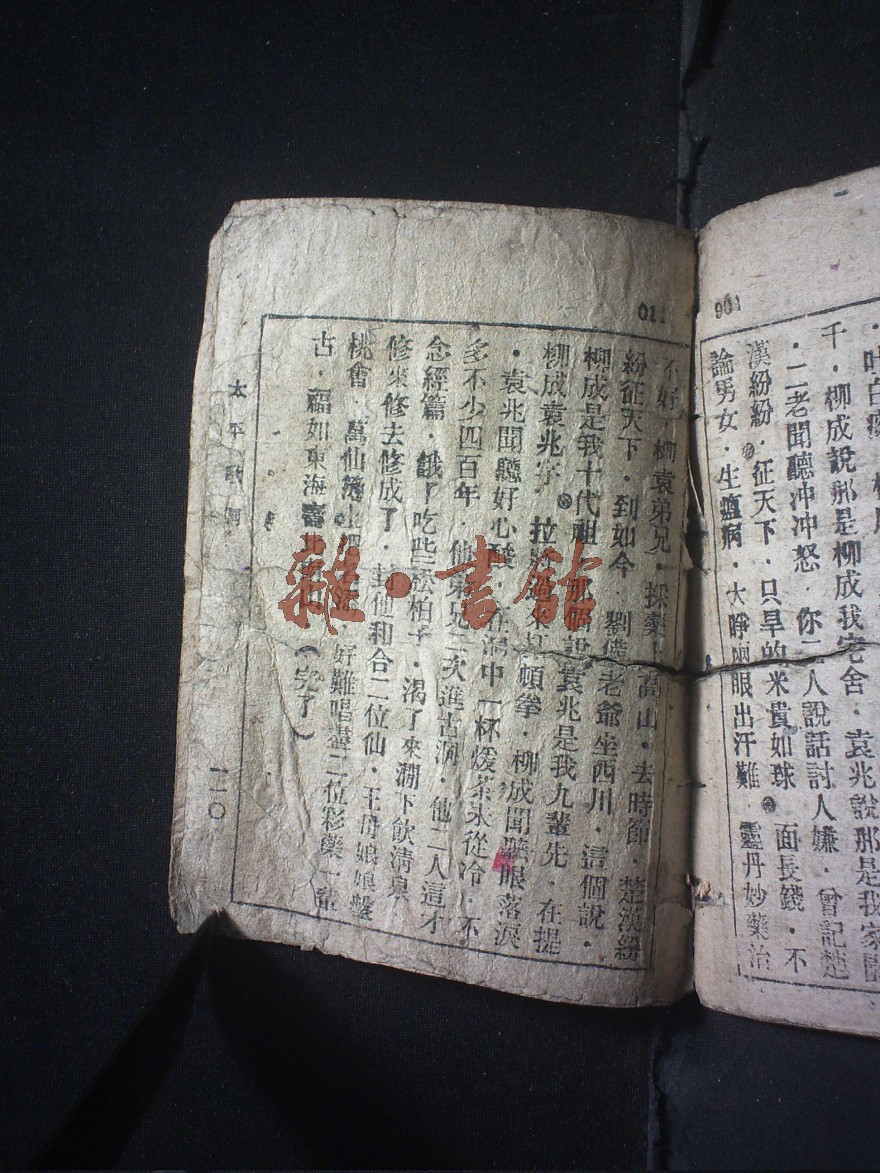 叶白
千．柳成說那是柳成我宅舍．袁兆說那是我家園
．二老聞聽冲冲怒．你二人說話討人嫌．曾記楚
漢紛紛．征天下．只早的米貴如球．面長錢．不
論男女．生瘟病．大睁兩眼出汗難．靈丹妙藥治
901
011
不好．柳袁弟兄．採藥高山．去時節．楚漢紛
紛征天下．到如今．劉備老爺坐西川．這個說．
柳成是我十代祖．那個說袁兆是我九輩先．在提
柳成袁兆字．拉過來打頓拳．柳成聞聽眼落淚
．袁兆聞聽好心酸．在洞中一杯煖茶未從冷．不
多不少四百年．仙弟兄二次進古洞．他二人這才
念經篇．餓了吃些松柏子．渴了來澗下飲清泉
修來修去修成了．封他和合二位仙．王母娘娘盤
桃會．萬仙 上 好難唱盡二位彩藥一
古．福如東海壽比南山（完了）
太平歌詞
一一〇
雜·書館